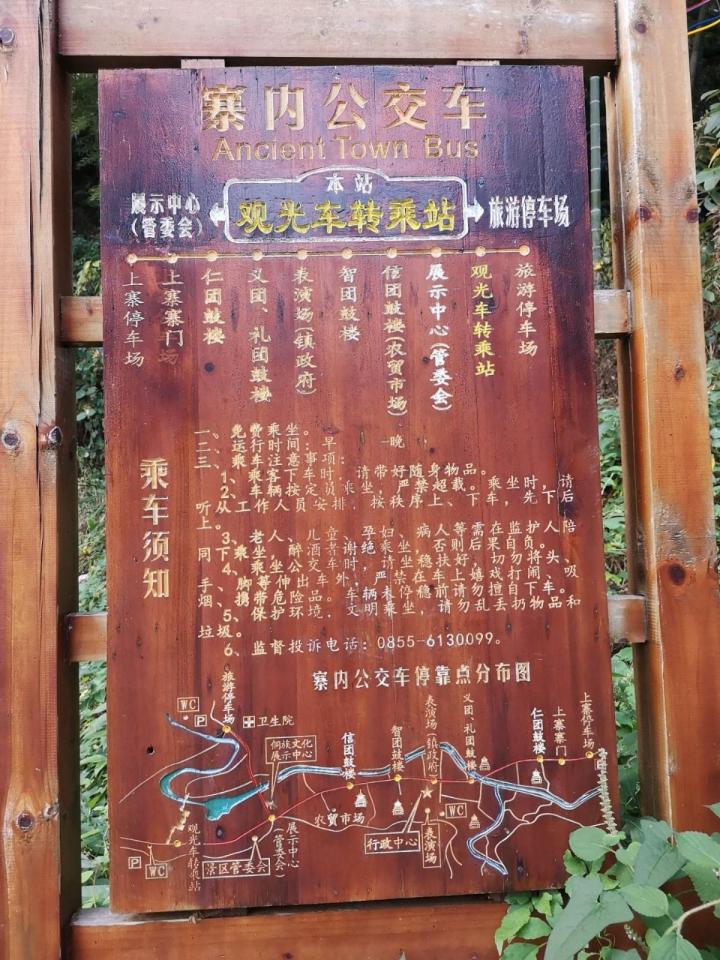 寨内公交车
Ancient Town Bus
本站
展示中心
(管委会)
观光车转乘站
旅游停车场
上寨停车场
上寨寨门
场
仁团鼓楼
义团、礼团鼓楼
表演场(镇政府)
智团鼓楼
信团鼓楼(农贸市场)
展示中心(管委会)
观光车转乘站
旅游停车场
乘车须知
一、免费乘坐。
二、运行时间:早 -晚
三、乘车注意事项:
1、乘客下车时,请带好随身物品。
2、车辆按定员乘坐,严禁超载。乘坐时,请
听从工作人员安排,按秩序上、下车,先下后
上。
3、老人、儿童、孕妇、病人等需在监护人陪
同下乘坐,醉酒者谢绝乘坐,否则后果自负。
4、乘坐公交车时,请坐稳扶好,切勿将头、
手、脚等伸出车外,严禁在车上嬉戏打闹、吸
烟、携带危险品。车辆未停稳前请勿擅自下车。
5、保护环境,文明乘坐,请勿乱丢扔物品和
垃圾。
6、监督投诉电话:0855-6130099。
寨内公交车停靠点分布图
旅游停车场
WC
P
卫生院
侗族文化
展示中心
信团鼓楼
智团鼓楼
表演场(镇政府)
义团、礼团鼓楼
仁团鼓楼
上寨寨门
上寨停车场
P
农贸市场
WC
观光车转乘站
展示中心
(管委会)
行政中心
表演场
P
WC
景区管委会